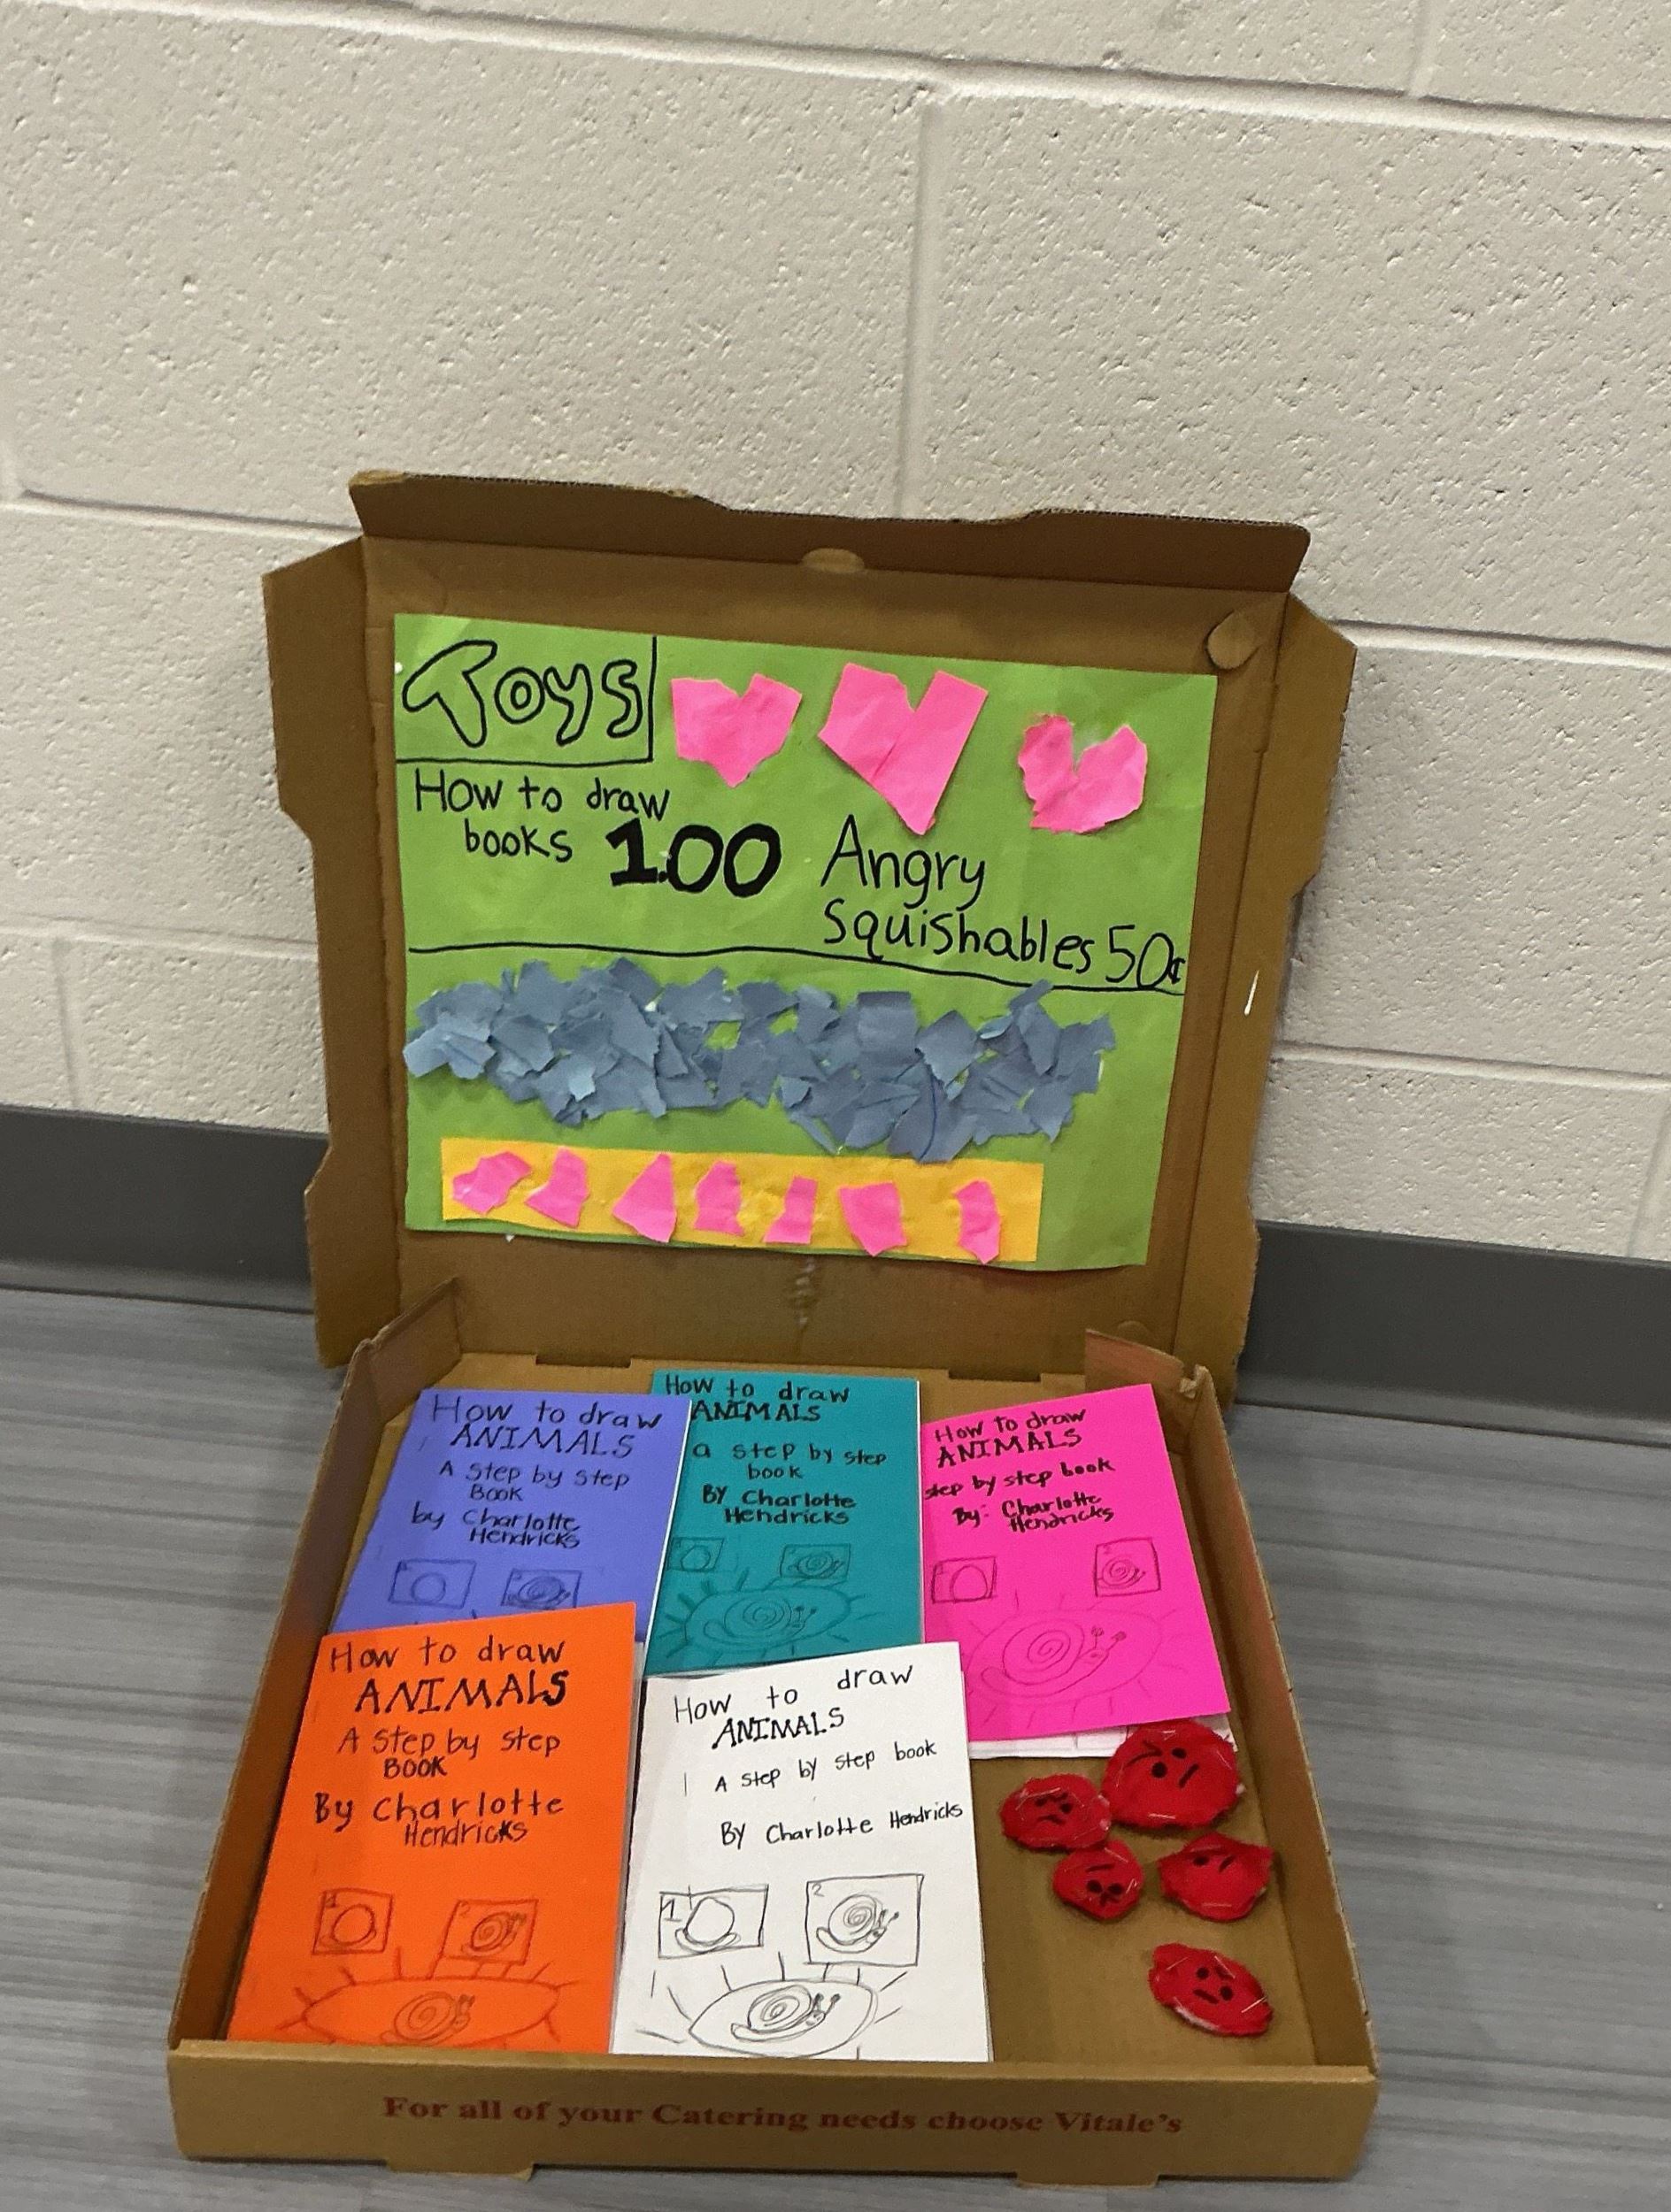 Toys
How to draw
books 1.00
Angry
Squishables 50¢
How to draw
ANIMALS
A Step by Step
Book
by Charlotte
Hendricks
How to draw
ANIMALS
a step by step
book
By Charlotte
Hendricks
How to draw
ANIMALS
step by step book
By: Charlotte
Hendricks
How to draw
ANIMALS
A Step by Step
BOOK
By Charlotte
Hendricks
1
2
How to draw
ANIMALS
A step by step book
By Charlotte Hendricks
1
2
For all of your Catering needs choose Vitale's